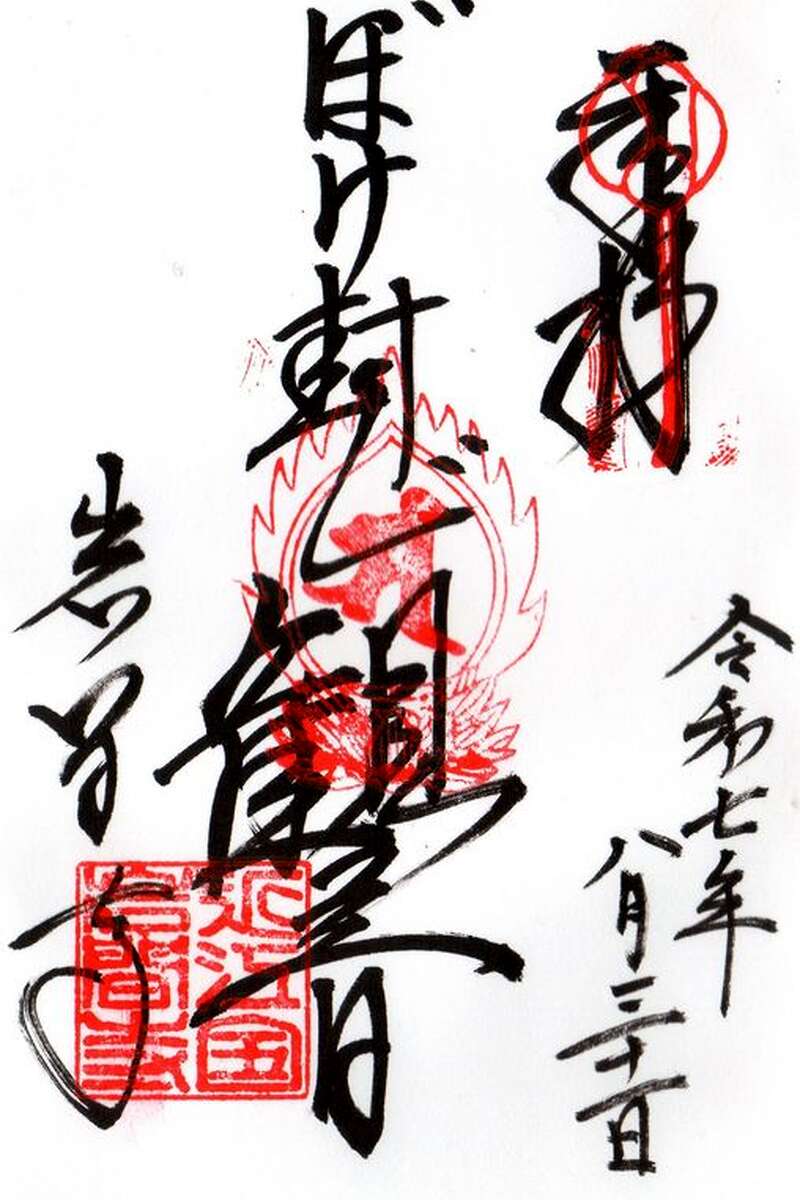 奉拝
令和七年
八月三十一日
ぼけ封じ観音
岩間寺
近江国
岩間寺